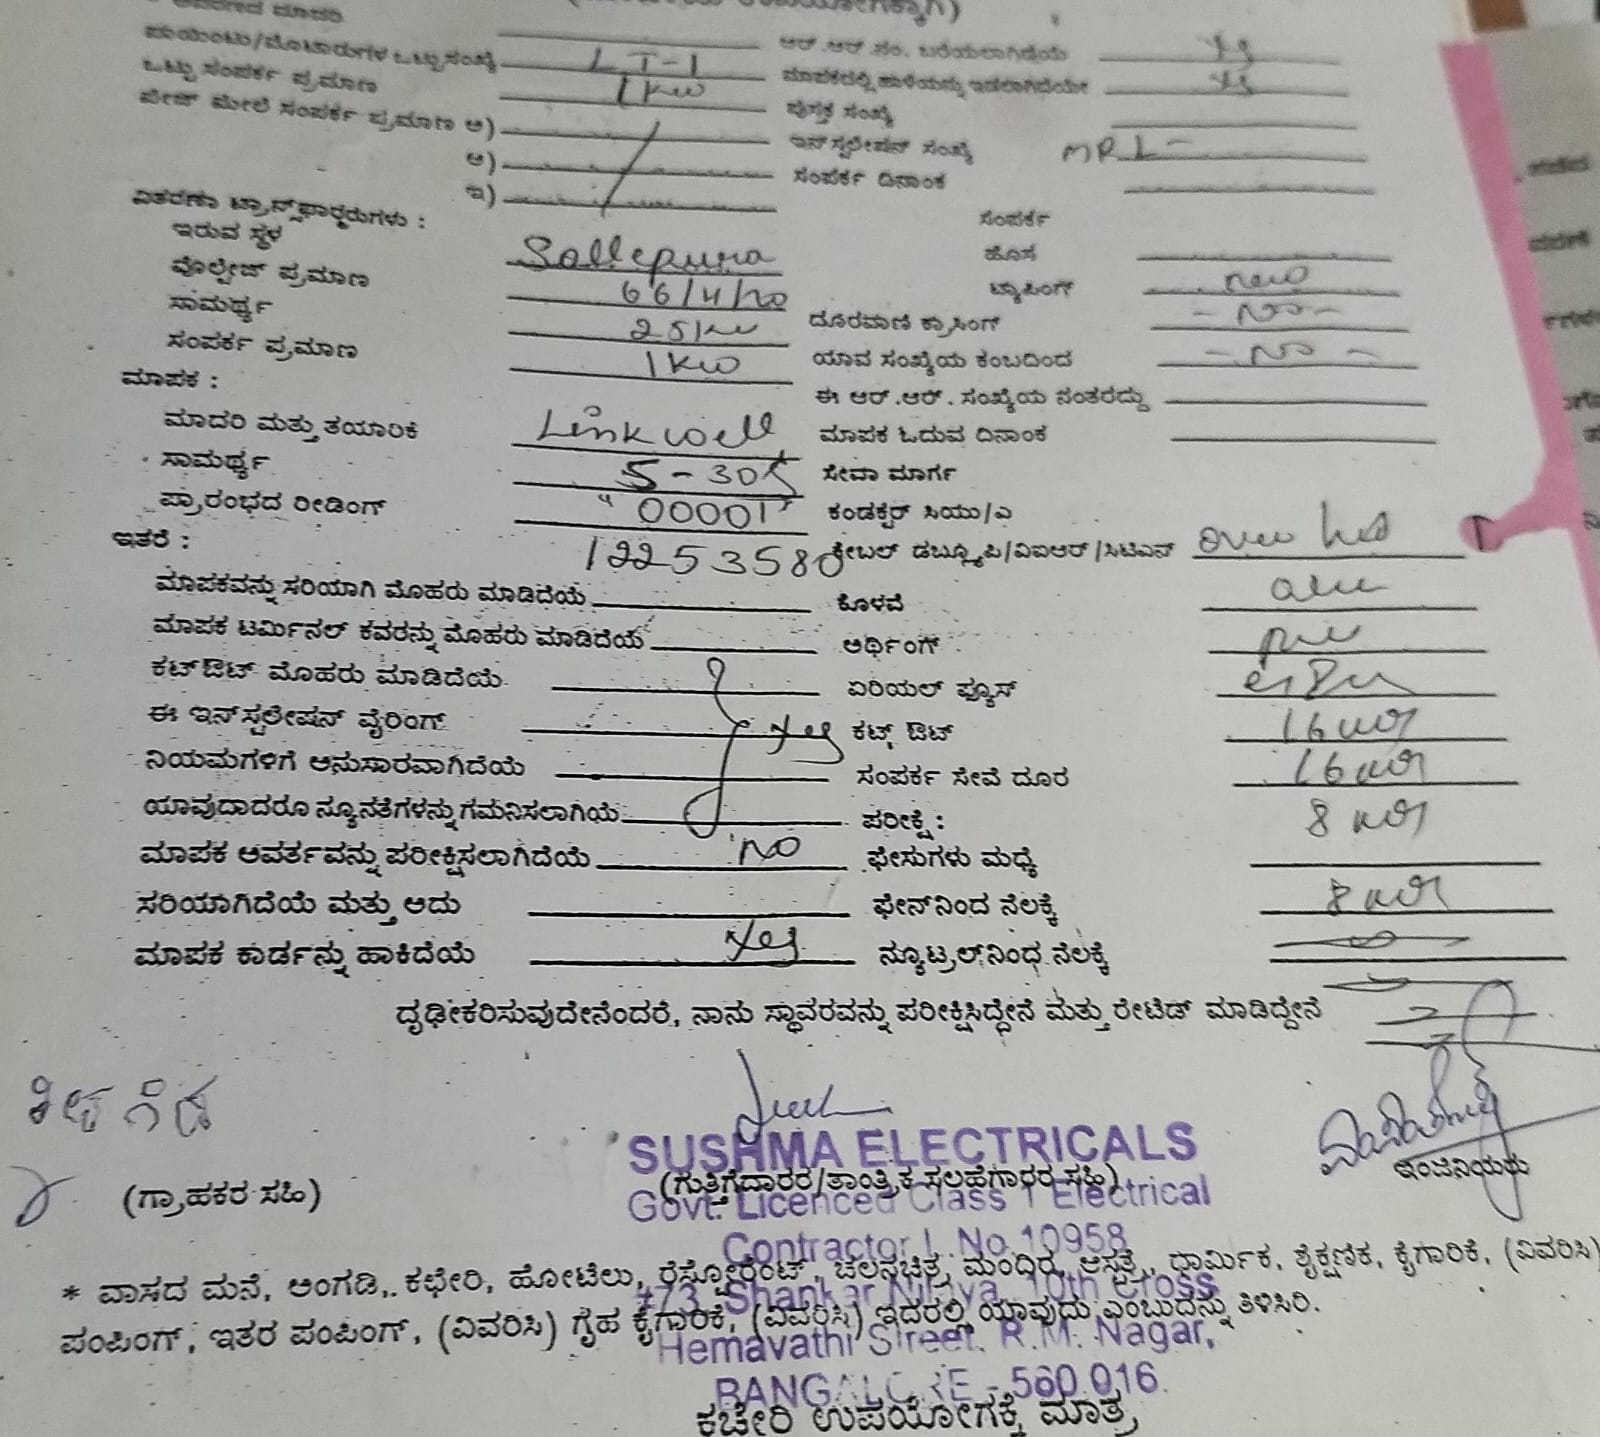 ಪಾಯಿಂಟು/ಮೋಟಾರುಗಳ ಒಟ್ಟು ಸಂಖ್ಯೆ LT-1 ಆರ್.ಆರ್.ಸಂ. ಬರೆಯಲಾಗಿದೆಯೆ Yes
ಒಟ್ಟು ಸಂಪರ್ಕ ಪ್ರಮಾಣ 1 KW ಮಾಪಕದಲ್ಲಿ ಹಾಳೆಯನ್ನು ಇಡಲಾಗಿದೆಯೇ Yes
ಪೇಜ್ ಮೇಲೆ ಸಂಪರ್ಕ ಪ್ರಮಾಣ ಅ) ಪುಸ್ತಕ ಸಂಖ್ಯೆ
ಆ) ಇನ್‌ಸ್ಟಲೇಷನ್ ಸಂಖ್ಯೆ
ಇ) ಸಂಪರ್ಕ ದಿನಾಂಕ
ವಿತರಣಾ ಟ್ರಾನ್ಸ್‌ಫಾರ್ಮರುಗಳು : ಸಂಪರ್ಕ
ಇರುವ ಸ್ಥಳ Sollepura ಹೊಸ
ವೋಲ್ಟೇಜ್ ಪ್ರಮಾಣ ಟ್ಯಾಪಿಂಗ್ new
ಸಾಮರ್ಥ್ಯ ದೂರವಾಣಿ ಕ್ರಾಸಿಂಗ್ - No -
ಸಂಪರ್ಕ ಪ್ರಮಾಣ 1 KW ಯಾವ ಸಂಖ್ಯೆಯ ಕಂಬದಿಂದ - No -
ಮಾಪಕ : ಈ ಆರ್.ಆರ್. ಸಂಖ್ಯೆಯ ನಂತರದ್ದು
ಮಾದರಿ ಮತ್ತು ತಯಾರಿಕೆ Linkwell ಮಾಪಕ ಓದುವ ದಿನಾಂಕ
ಸಾಮರ್ಥ್ಯ 5-30 ಸೇವಾ ಮಾರ್ಗ
ಪ್ರಾರಂಭದ ರೀಡಿಂಗ್ "00001" ಕಂಡಕ್ಟರ್ ಸಿಯು/ಎ
ಇತರೆ : 12253580 ಕೇಬಲ್ ಡಬ್ಲ್ಯೂಪಿ/ವಿಐಆರ್/ಸಿಟಿಎಸ್
ಮಾಪಕವನ್ನು ಸರಿಯಾಗಿ ಮೊಹರು ಮಾಡಿದೆಯೆ ಕೊಳವೆ
ಮಾಪಕ ಟರ್ಮಿನಲ್ ಕವರನ್ನು ಮೊಹರು ಮಾಡಿದೆಯೆ ಅರ್ಥಿಂಗ್
ಕಟ್‌ಔಟ್ ಮೊಹರು ಮಾಡಿದೆಯೆ ಏರಿಯಲ್ ಫ್ಯೂಸ್
ಈ ಇನ್‌ಸ್ಟಲೇಷನ್ ವೈರಿಂಗ್ Yes ಕಟ್ಸ್ ಔಟ್ 16
ನಿಯಮಗಳಿಗೆ ಅನುಸಾರವಾಗಿದೆಯೆ ಸಂಪರ್ಕ ಸೇವೆ ದೂರ 16
ಯಾವುದಾದರೂ ನ್ಯೂನತೆಗಳನ್ನು ಗಮನಿಸಲಾಗಿಯೆ ಪರೀಕ್ಷೆ : 8
ಮಾಪಕ ಆವರ್ತವನ್ನು ಪರೀಕ್ಷಿಸಲಾಗಿದೆಯೆ NO ಫೇಸುಗಳು ಮಧ್ಯೆ
ಸರಿಯಾಗಿದೆಯೆ ಮತ್ತು ಅದು ಫೇಸ್‌ನಿಂದ ನೆಲಕ್ಕೆ 8
ಮಾಪಕ ಕಾರ್ಡನ್ನು ಹಾಕಿದೆಯೆ Yes ನ್ಯೂಟ್ರಲ್‌ನಿಂಧ ನೆಲಕ್ಕೆ
ದೃಢೀಕರಿಸುವುದೇನೆಂದರೆ, ನಾನು ಸ್ಥಾವರವನ್ನು ಪರೀಕ್ಷಿಸಿದ್ದೇನೆ ಮತ್ತು ರೇಟೆಡ್ ಮಾಡಿದ್ದೇನೆ
SUSHMA ELECTRICALS
(ಗ್ರಾಹಕರ ಸಹಿ) (ಗುತ್ತಿಗೆದಾರರ/ತಾಂತ್ರಿಕ ಸಲಹೆಗಾರರ ಸಹಿ) ಇಂಜಿನಿಯರು
Govt. Licenced Class 1 Electrical
Contractor L. No. 10958
* ವಾಸದ ಮನೆ, ಅಂಗಡಿ, ಕಛೇರಿ, ಹೋಟೆಲು, ರೆಸ್ಟೋರೆಂಟ್, ಚಲನಚಿತ್ರ ಮಂದಿರ, ಆಸ್ಪತ್ರೆ, ಧಾರ್ಮಿಕ, ಶೈಕ್ಷಣಿಕ, ಕೈಗಾರಿಕೆ, (ವಿವರಿಸಿ)
#73, Shankar Nilaya, 10th Cross
ಪಂಪಿಂಗ್, ಇತರ ಪಂಪಿಂಗ್, (ವಿವರಿಸಿ) ಗೃಹ ಕೈಗಾರಿಕೆ, (ವಿವರಿಸಿ) ಇದರಲ್ಲಿ ಯಾವುದು ಎಂಬುದನ್ನು ತಿಳಿಸಿರಿ.
Hemavathi Street, R.M. Nagar,
BANGALORE - 560 016.
ಕಚೇರಿ ಉಪಯೋಗಕ್ಕೆ ಮಾತ್ರ